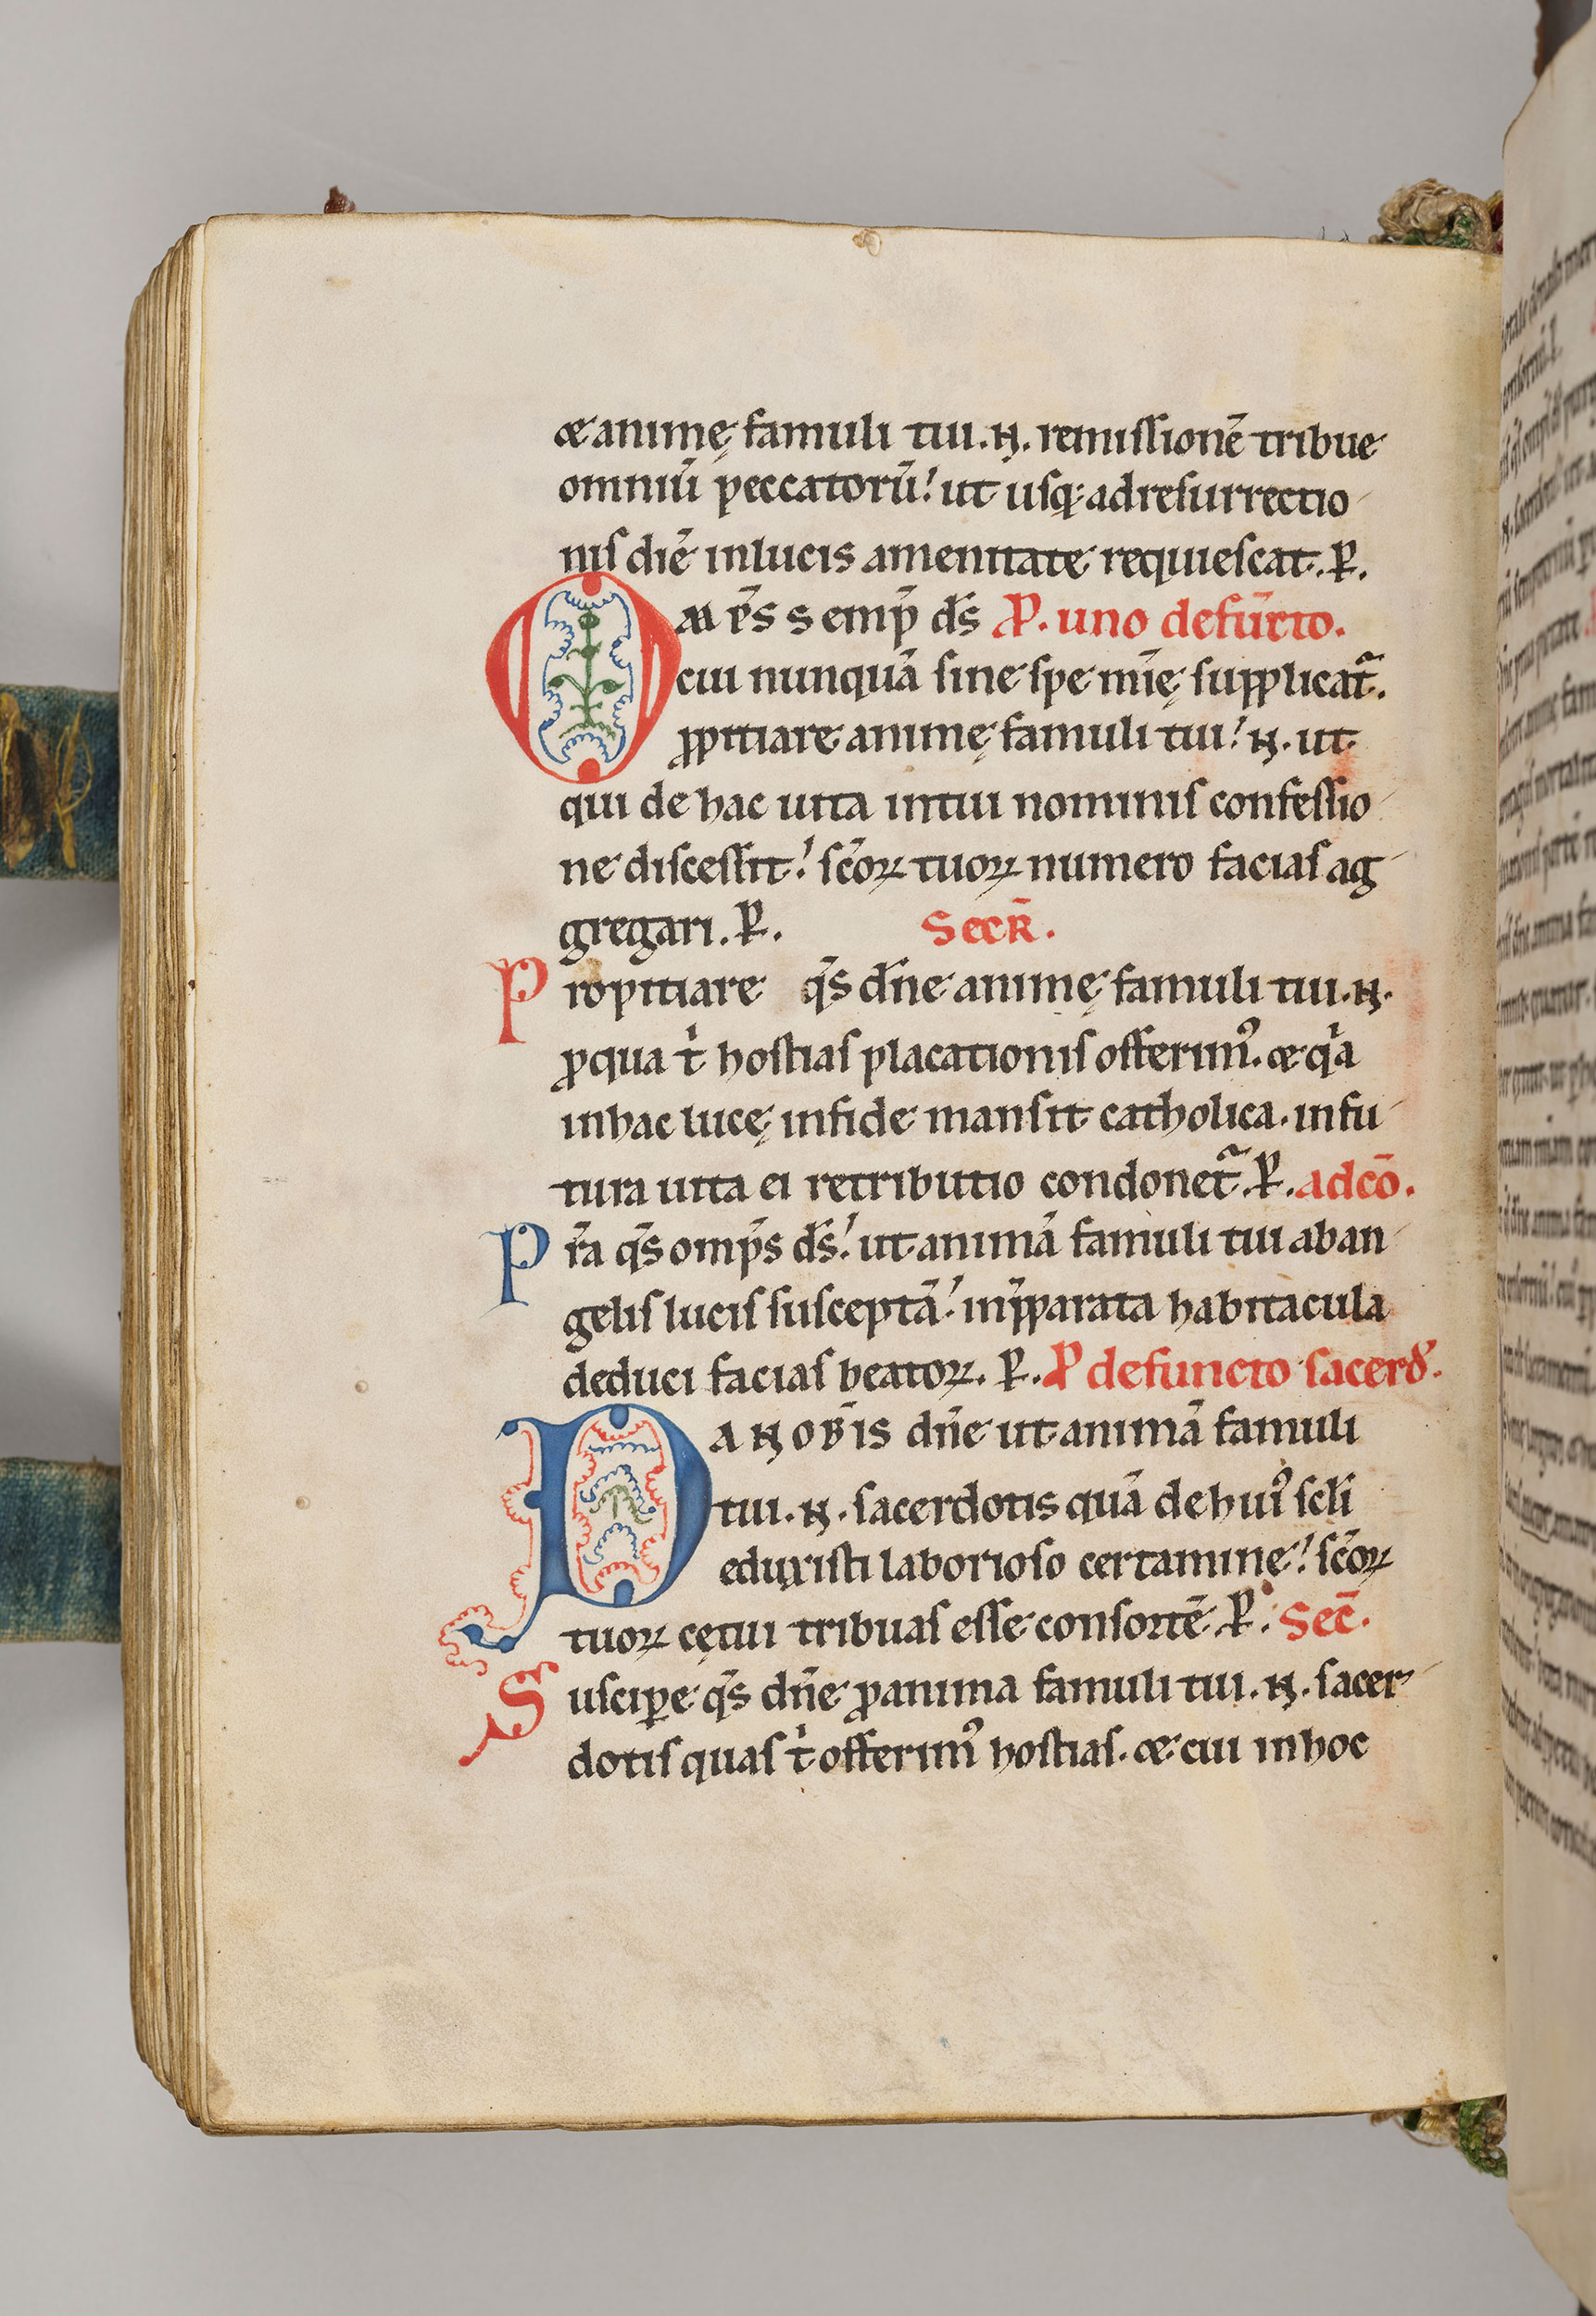 & animę famuli tui .N. remissionē tribue
omniū peccatorū! ut usq; ad resurrectio
nis diē in lucis amenitate requiescat. P̄.
OMP̄S semp̄ ds̄ P̄. uno defūcto.
cui nunquā sine spe mīę supplicat̄.
p̱pitiare animę famuli tui! N. ut
qui de hac uita in tui nominis confessio
ne discessit! sc̄oꝝ tuoꝝ numero facias ag
gregari. P̄. SecR̄.
Propitiare qs̄ dn̄e animę famuli tui .N.
ꝓ qua t̍ hostias placationis offerimꝰ. & qͥa
in hac lucę in fide mansit catholica. in fu
tura uita ei retributio condonet̄. P̄. ad cō.
Pr̄a qs̄ omp̄s ds̄! ut animā famuli tui ab an
gelis lucis susceptā! in p̄parata habitacula
deduci facias beatoꝝ. P̄. P̄ defuncto sacerd̄.
DA NOB̄IS dn̄e ut animā famuli
tui .N. sacerdotis quā de huiꝰ scl̄i
eduxisti laborioso certamine! sc̄oꝝ
tuoꝝ cętui tribuas esse consortē. P̄. Sec̄.
Suscipe qs̄ dn̄e ꝓ anima famuli tui .N. sacer
dotis quas t̍ offerimꝰ hostias. & cui in hoc